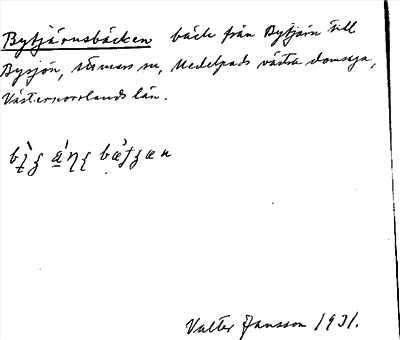 Bytjärnsbäcken bäck från Bytjärn till
Bysjön, sn, Medelpads västra domsaga,
Västernorrlands län.
Valter Jansson 1931.